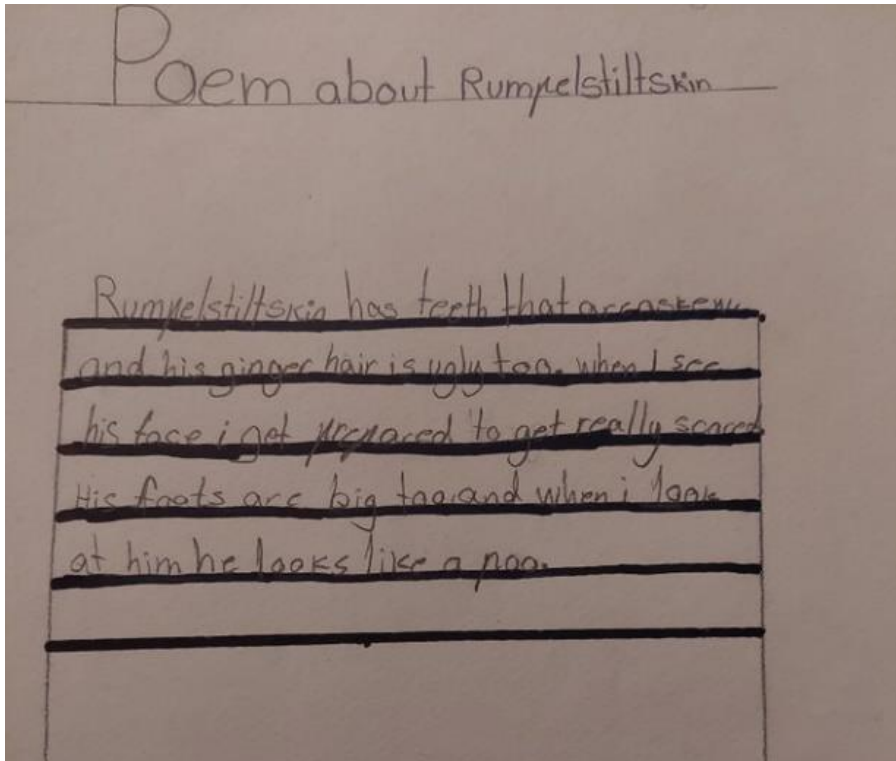 Poem about Rumpelstiltskin
Rumpelstiltskin has teeth that are askew
and his ginger hair is ugly too. when I see
his face i get prepared to get really scared
His foots are big too. and when i look
at him he looks like a poo.